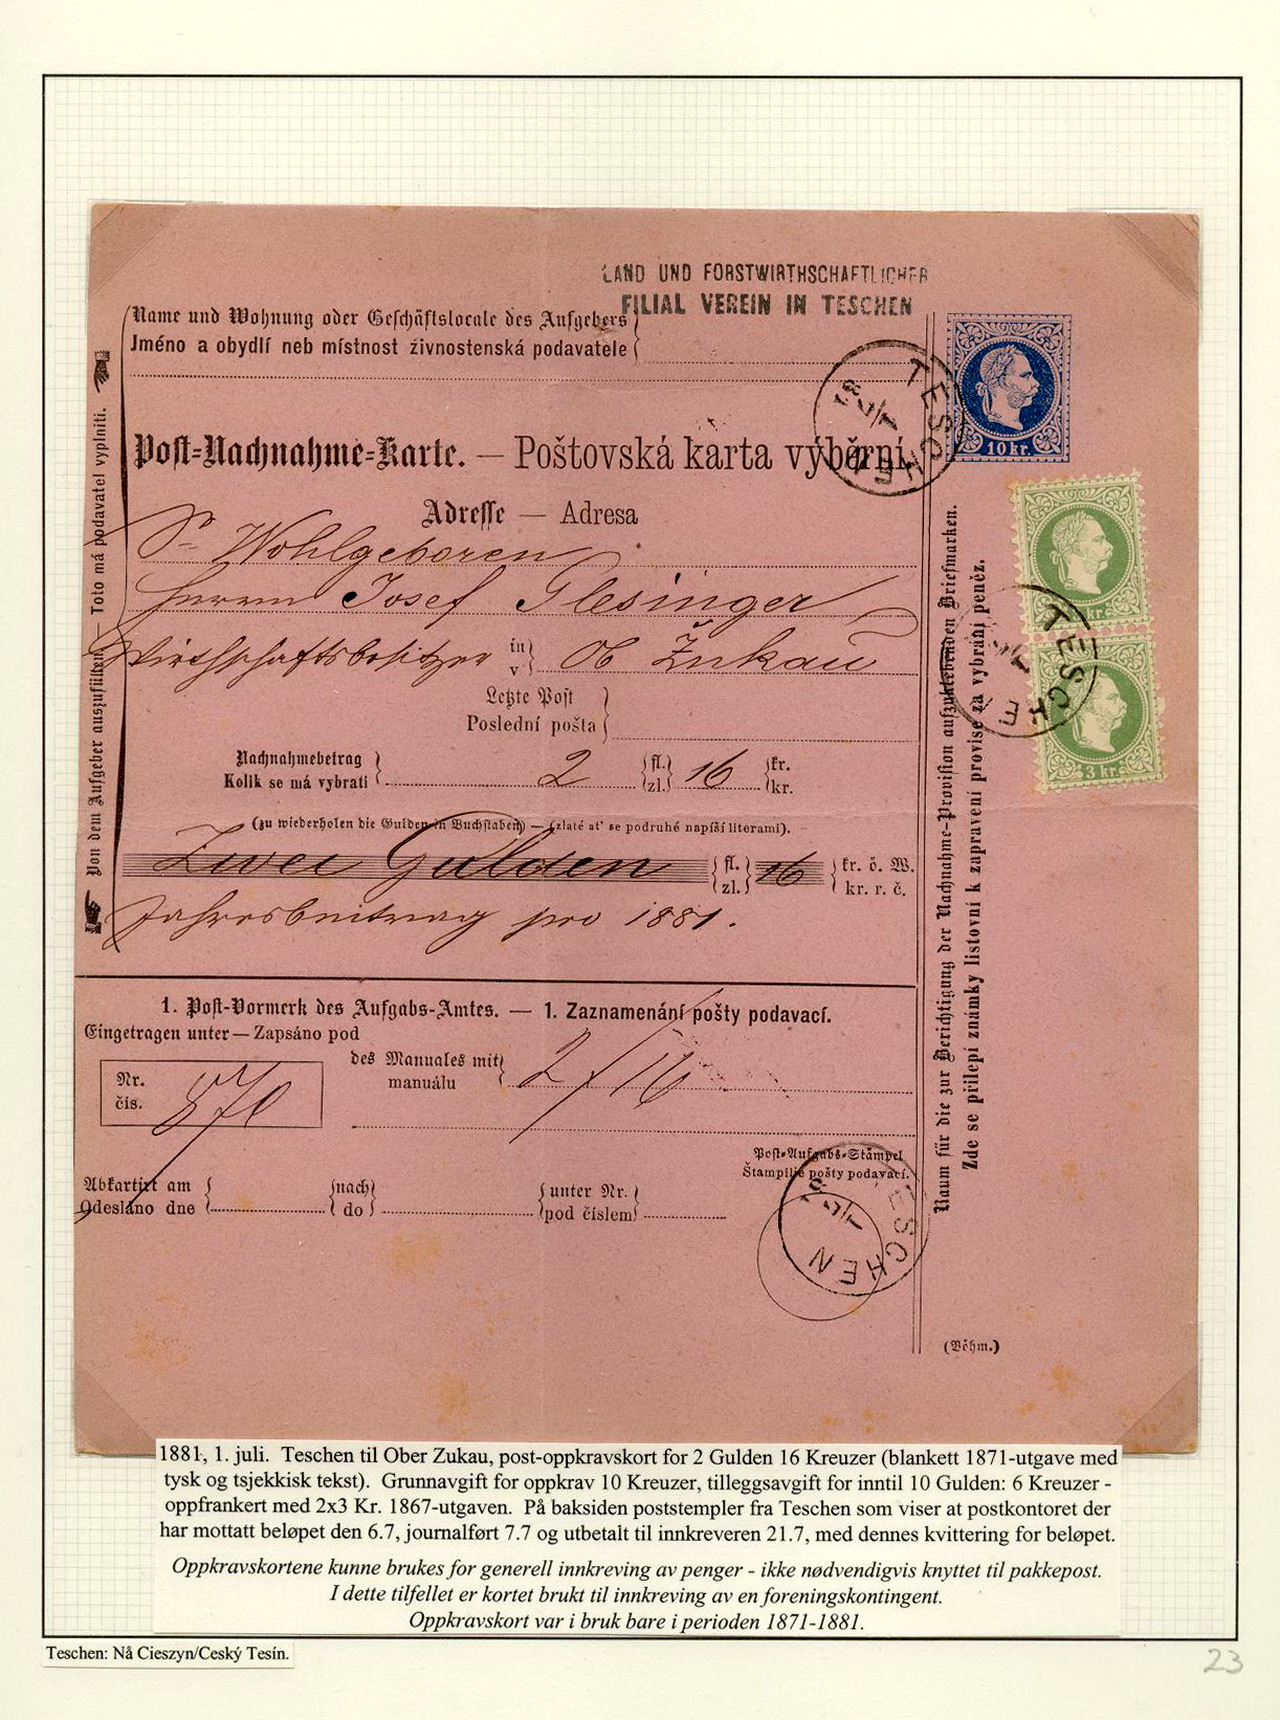 LAND UND FORSTWIRTHSCHAFTLICHER
FILIAL VEREIN IN TESCHEN
Name und Wohnung oder Geschäftslocale des Aufgebers
Jméno a obydlí neb místnost živnostenská podavatele
TESCHEN
1/7 81
10 kr.
Post-Nachnahme-Karte. — Poštovská karta výběrní.
Adresse — Adresa
Sr Wohlgeboren
Herrn Josef Glesinger
Wirthschaftsbesitzer in v Ob Žukau
Letzte Post
Poslední pošta
Nachnahmebetrag
Kolik se má vybrati 2 fl. zl. 16 kr. kr.
(zu wiederholen die Gulden in Buchstaben) — (zlaté ať se podruhé napíší literami).
Zwei Gulden fl. zl. 16 kr. ö. W. kr. r. č.
Jahresbeitrag pro 1881.
Von dem Aufgeber auszufüllen. — Toto má podavatel vyplniti.
kr.
TESCHEN
3 kr.
Raum für die zur Berichtigung der Nachnahme-Provision aufzuklebenden Briefmarken.
Zde se přilepí známky listovní k zapravení provise za vybrání peněz.
1. Post-Vormerk des Aufgabs-Amtes. — 1. Zaznamenání pošty podavací.
Eingetragen unter — Zapsáno pod
Nr.
čis. 870
des Manuales mit
manuálu 2/16
Post-Aufgabs-Stämpel
Štampilie pošty podavací.
Abkartirt am
Odesláno dne
nach
do
unter Nr.
pod číslem
TESCHEN
1/7 81
(Böhm.)
1881, 1. juli. Teschen til Ober Zukau, post-oppkravskort for 2 Gulden 16 Kreuzer (blankett 1871-utgave med
tysk og tsjekkisk tekst). Grunnavgift for oppkrav 10 Kreuzer, tilleggsavgift for inntil 10 Gulden: 6 Kreuzer -
oppfrankert med 2x3 Kr. 1867-utgaven. På baksiden poststempler fra Teschen som viser at postkontoret der
har mottatt beløpet den 6.7, journalført 7.7 og utbetalt til innkreveren 21.7, med dennes kvittering for beløpet.
Oppkravskortene kunne brukes for generell innkreving av penger - ikke nødvendigvis knyttet til pakkepost.
I dette tilfellet er kortet brukt til innkreving av en foreningskontingent.
Oppkravskort var i bruk bare i perioden 1871-1881.
Teschen: Nå Cieszyn/Ceský Tesín.
23